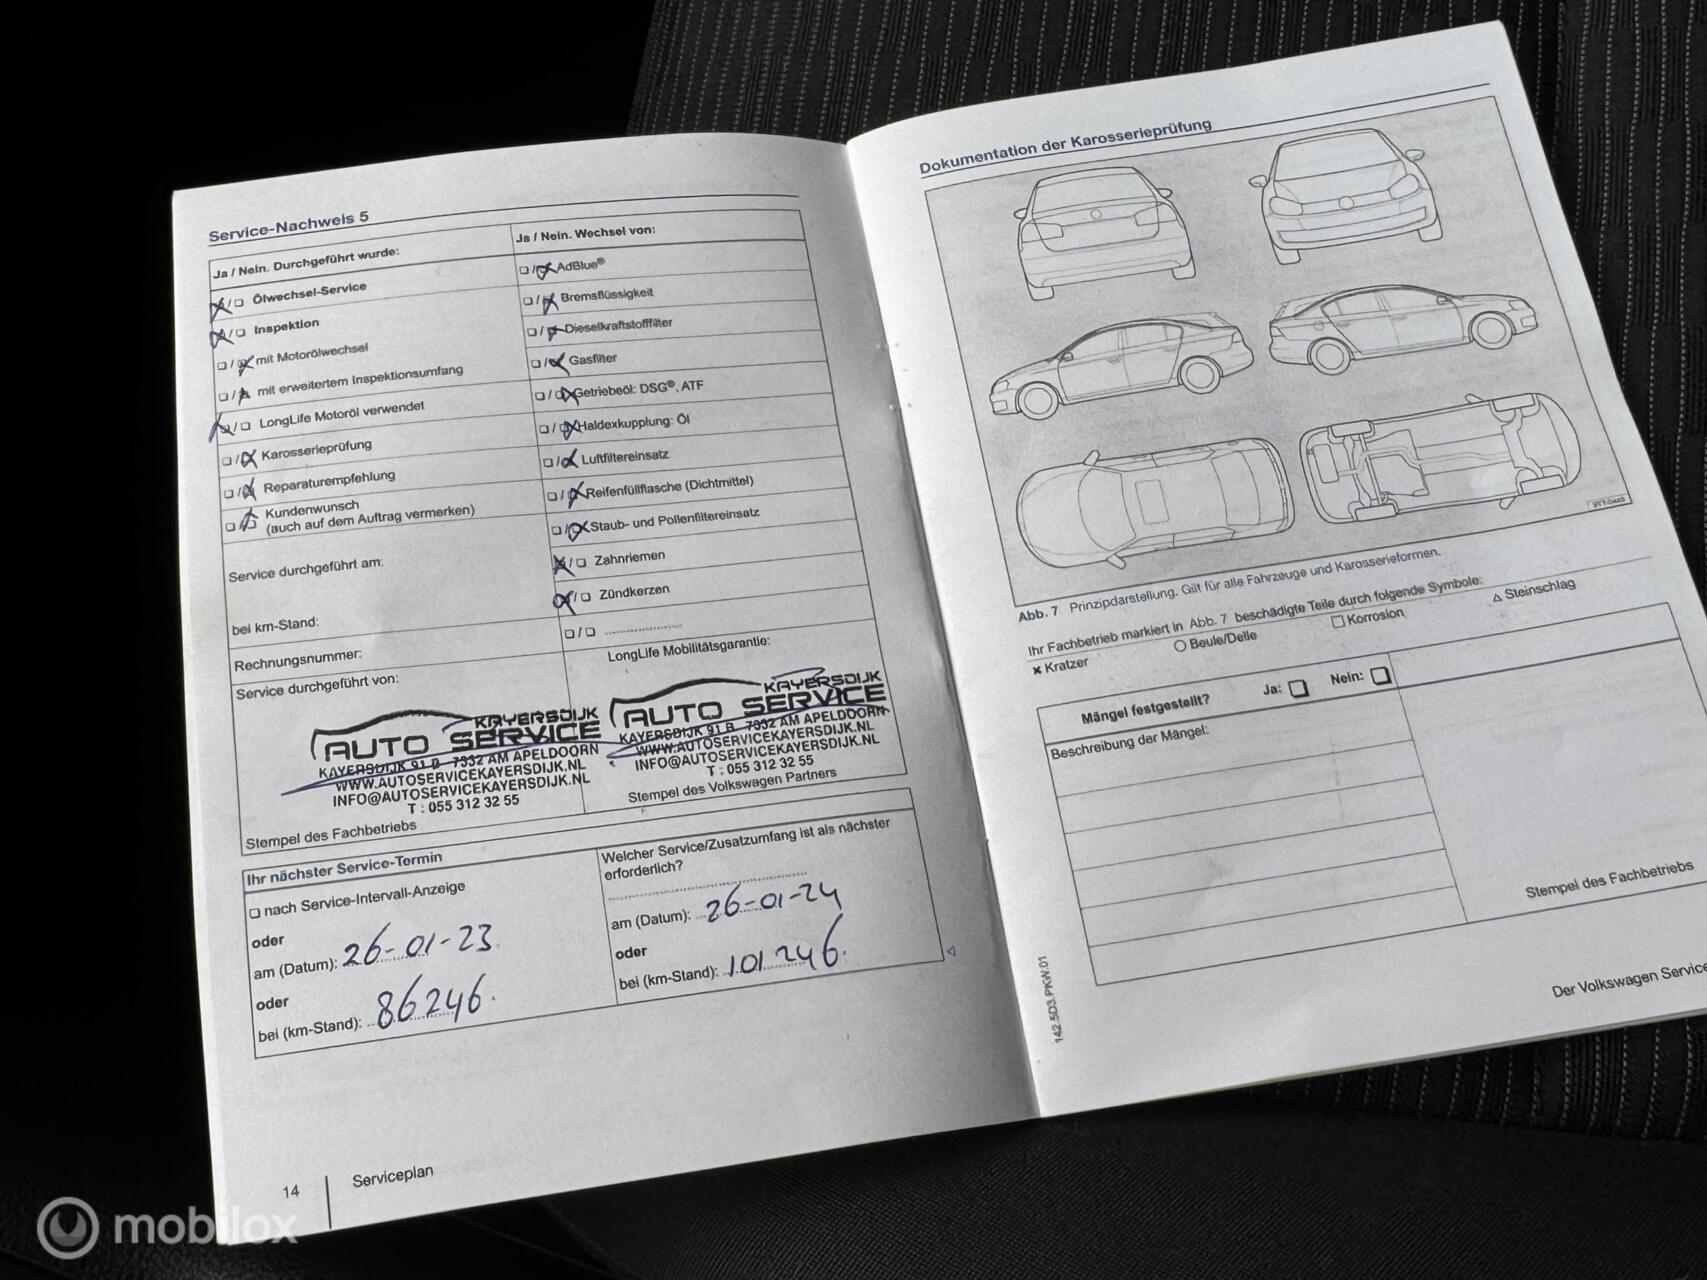 Service-Nachweis 5
Ja / Nein. Durchgeführt wurde:
Ölwechsel-Service
Inspektion
mit Motorölwechsel
mit erweitertem Inspektionsumfang
LongLife Motoröl verwendet
Karosserieprüfung
Reparaturempfehlung
Kundenwunsch
(auch auf dem Auftrag vermerken)
Service durchgeführt am:
bei km-Stand:
Rechnungsnummer:
Service durchgeführt von:
KAYERSDIJK
AUTO SERVICE
KAYERSDIJK 91 B 7332 AM APELDOORN
WWW.AUTOSERVICEKAYERSDIJK.NL
INFO@AUTOSERVICEKAYERSDIJK.NL
T : 055 312 32 55
Stempel des Fachbetriebs
Ja / Nein. Wechsel von:
AdBlue®
Bremsflüssigkeit
Dieselkraftstofffilter
Gasfilter
Getriebeöl: DSG®, ATF
Haldexkupplung: Öl
Luftfiltereinsatz
Reifenfüllflasche (Dichtmittel)
Staub- und Pollenfiltereinsatz
Zahnriemen
Zündkerzen
LongLife Mobilitätsgarantie:
KAYERSDIJK
AUTO SERVICE
KAYERSDIJK 91 B 7332 AM APELDOORN
WWW.AUTOSERVICEKAYERSDIJK.NL
INFO@AUTOSERVICEKAYERSDIJK.NL
T : 055 312 32 55
Stempel des Volkswagen Partners
Ihr nächster Service-Termin
nach Service-Intervall-Anzeige
oder
am (Datum): 26-01-23
oder
bei (km-Stand): 86246.
Welcher Service/Zusatzumfang ist als nächster
erforderlich?
am (Datum): 26-01-24
oder
bei (km-Stand): 101246.
14 Serviceplan
Dokumentation der Karosserieprüfung
Abb. 7 Prinzipdarstellung. Gilt für alle Fahrzeuge und Karosserieformen.
Ihr Fachbetrieb markiert in Abb. 7 beschädigte Teile durch folgende Symbole:
Kratzer Beule/Delle Korrosion Steinschlag
Mängel festgestellt? Ja: Nein:
Beschreibung der Mängel:
Stempel des Fachbetriebs
142.5D3.PKW.01
Der Volkswagen Service
mobilox